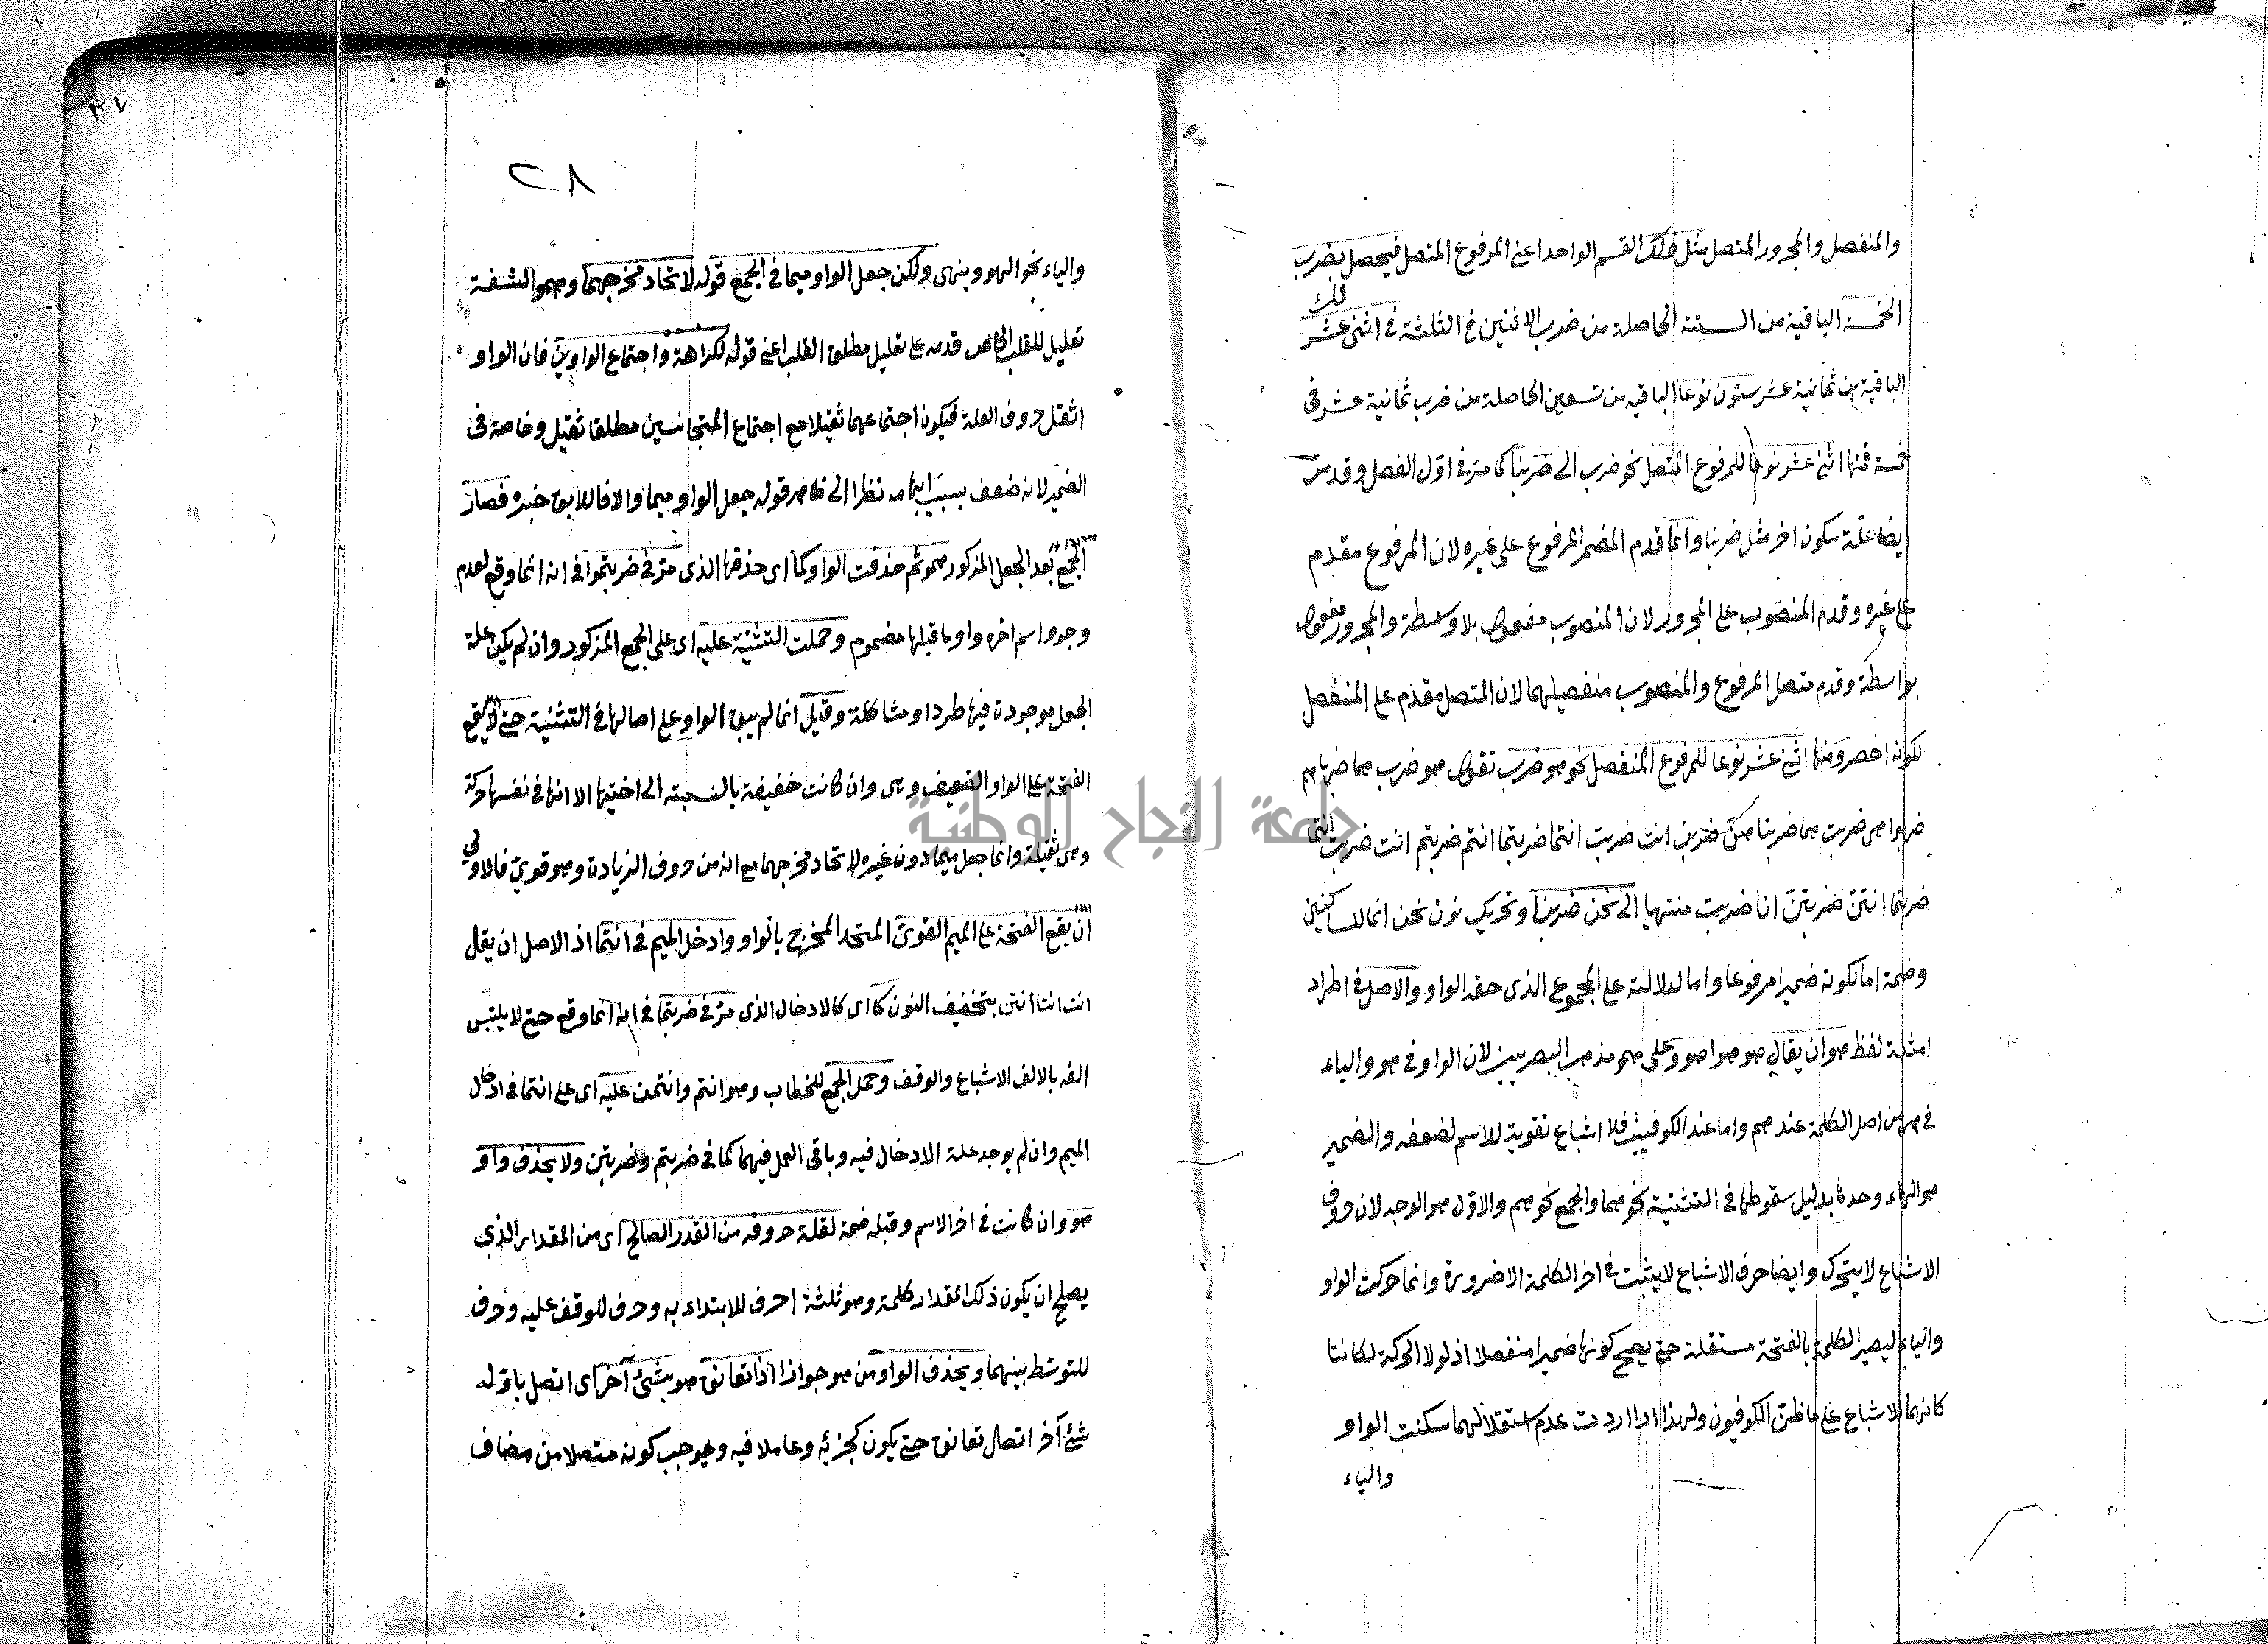 والمنفصل والمجرور المتصل مثل ذلك القسم الواحد اعنى المرفوع المتصل فيحصل بضرب
تلك
الخمسة الباقية من الستة الحاصلة من ضرب الاثنين فى الثلثة فى اثنى عشر
الباقية من ثمانية عشر ستون نوعا الباقيه من تسعين الحاصلة من ضرب ثمانية عشر فى
خمسة فمنها اثنى عشر نوعا للمرفوع المتصل نحو ضرب الى ضربنا كما مر فى اول الفصل وقد مر
ايضا علة سكون اخر مثل ضربنا وانما قدم المضمر المرفوع على غيره لان المرفوع مقدم
على غيره وقدم المنصوب على المجرور لان المنصوب مفعول بلا واسطة والمجرور مفعول
بواسطة وقدم متصل المرفوع والمنصوب منفصليهما لان المتصل مقدم على المنفصل
لكونه اخصر ومنها اثنى عشر نوعا للمرفوع المنفصل نحو هو ضرب تقول هو ضرب هما ضربا هم
ضربوا هى ضربت هما ضربتا هن ضربن انت ضربت انتما ضربتما انتم ضربتم انت ضربت انتما
ضربتما انتن ضربتن انا ضربت منتهيا الى نحن ضربنا وتحريك نون نحن انما للساكنين
وضمة اما لكونه ضميرا مرفوعا واما لدلالته على المجموع الذى حقه الواو والاصل فى اطراد
امثلة لفظ هو ان يقال هو هوا هوو على هم مذهب البصريين لان الواو فى هو والياء
فى هى من اصل الكلمة عندهم واما عند الكوفيين فلا اشباع تقوية للاسم لضعفه والضمير
هو الهاء وحدها بدليل سقوطها فى التثنية نحو هما والجمع نحو هم والاول هو الوجه لان حروف
الاشباع لا يتحرك وايضا حرف الاشباع لا يثبت فى اخر الكلمة الا ضرورة وانما حركت الواو
والياء ليصير الكلمة بالفتحة مستقلة حتى يصح كونها ضميرا منفصلا اذ لولا الحركة لكانتا
كانهما للاشباع على ما ظن الكوفيون ولهذا اذا اردت عدم استقلالهما سكنت الواو
والياء
٢٧
٢٨
والياء نحو الهو وبنهى ولكن جعل الواو ميما فى الجمع قوله لاتحاد مخرجهما وهو الشفة
تعليل للقلب الخاص قدمه على تعليل مطلق القلب اعنى قوله لكراهة واجتماع الواوين فان الواو
اثقل حروف العلة فيكون اجتماعهما ثقيلا مع اجتماع المتجانسين مطلقا ثقيل وخاصة فى
الضمير لانه ضعف بسبب ابهامه نظرا الى ظاهر قوله جعل الواو ميما والا فاللايق خبره فصار
الجمع بعد الجعل المذكور همو ثم حذفت الواو كما اى حذفها الذى مر فى ضربتموا فى انه انما وقع لعدم
وجود اسم اخره واو ما قبلها مضموم وحملت التثنية عليه اى على الجمع المذكور وان لم يكن علة
الجعل موجودة فيها طردا ومشاكلة وقيل انما لم يبق الواو على اصالها فى التثنية حتى لا يقع
الفتحة على الواو الضعيف وهى وان كانت خفيفة بالنسبة الى اختيها الا انها فى نفسها حركة
وهى ثقيلة وانما جعل ميما دون غيره لاتحاد مخرجهما مع انه من حروف الزيادة وهو قوى فالاولى
ان يقع الفتحة على الميم القوى المتحد المخرج بالواو وادخل الميم فى انتما اذ الاصل ان يقل
انت انتا انتن بتخفيف النون كما اى كالادخال الذى مر فى ضربتما فى انه انما وقع حتى لا يلتبس
الفه بالالف الاشباع والوقف وحمل الجمع للخطاب وهو انتم وانتمن عليه اى على انتما فى ادخال
الميم وان لم يوجد علة الادخال فيه وباقى العمل فيهما كما فى ضربتم وضربتن ولا يحذف واو
هو وان كانت فى اخر الاسم وقبله ضمة لقلة حروفه من القدر الصالح اى من المقدار الذى
يصلح ان يكون ذلك المقدار كلمة وهو ثلثة احرف للابتداء به وحرف للوقف عليه وحرف
للتوسط بينهما ويحذف الواو من هو جوازا اذا تعانق هو بشئ آخر اى اتصل باوله
شئ آخر اتصال تعانق حتى يكون كجزئه وعاملا فيه وهو جب كونه متصلا من مضاف
جامعة النجاح الوطنية